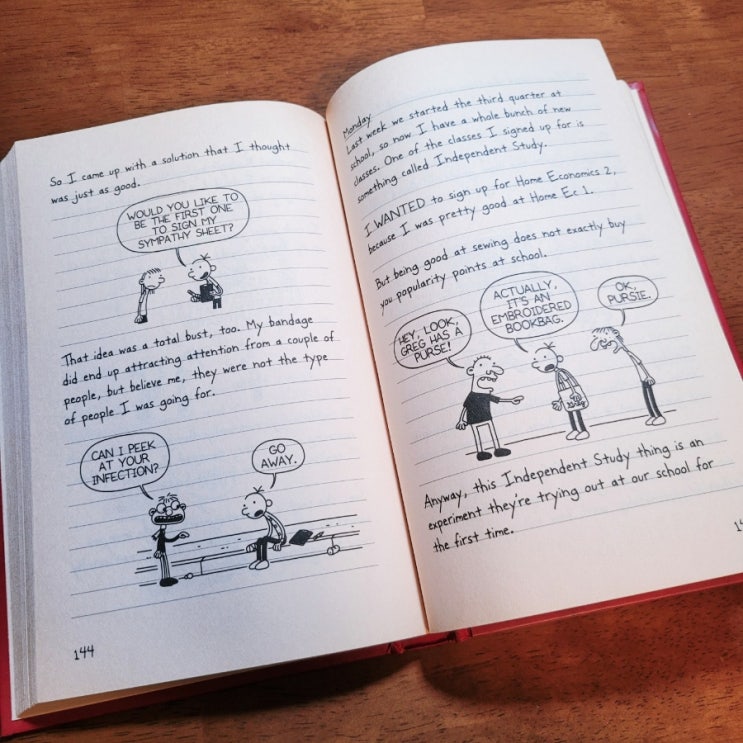 So I came up with a solution that I thought
was just as good.
WOULD YOU LIKE TO
BE THE FIRST ONE
TO SIGN MY
SYMPATHY SHEET?
That idea was a total bust, too. My bandage
did end up attracting attention from a couple of
people, but believe me, they were not the type
of people I was going for.
CAN I PEEK
AT YOUR
INFECTION?
GO
AWAY.
144
Monday
Last week we started the third quarter at
school, so now I have a whole bunch of new
classes. One of the classes I signed up for is
something called Independent Study.
I WANTED to sign up for Home Economics 2,
because I was pretty good at Home Ec 1.
But being good at sewing does not exactly buy
you popularity points at school.
HEY, LOOK,
GREG HAS A
PURSE!
ACTUALLY,
IT'S AN
EMBROIDERED
BOOKBAG.
OK,
PURSIE.
Anyway, this Independent Study thing is an
experiment they're trying out at our school for
the first time.